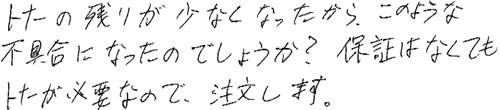 トナーの残りが少なくなったから、このような
不具合になったのでしょうか？ 保証はなくても
トナーが必要なので、注文します。